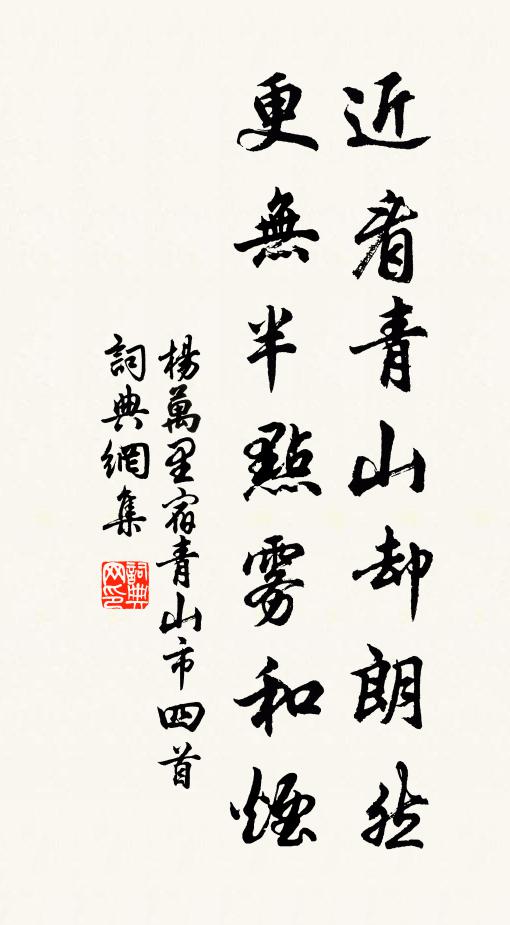 近看青山却朗然
更無半點雾和煙
楊萬里宿青山市四首
詞典網集
詞典网印